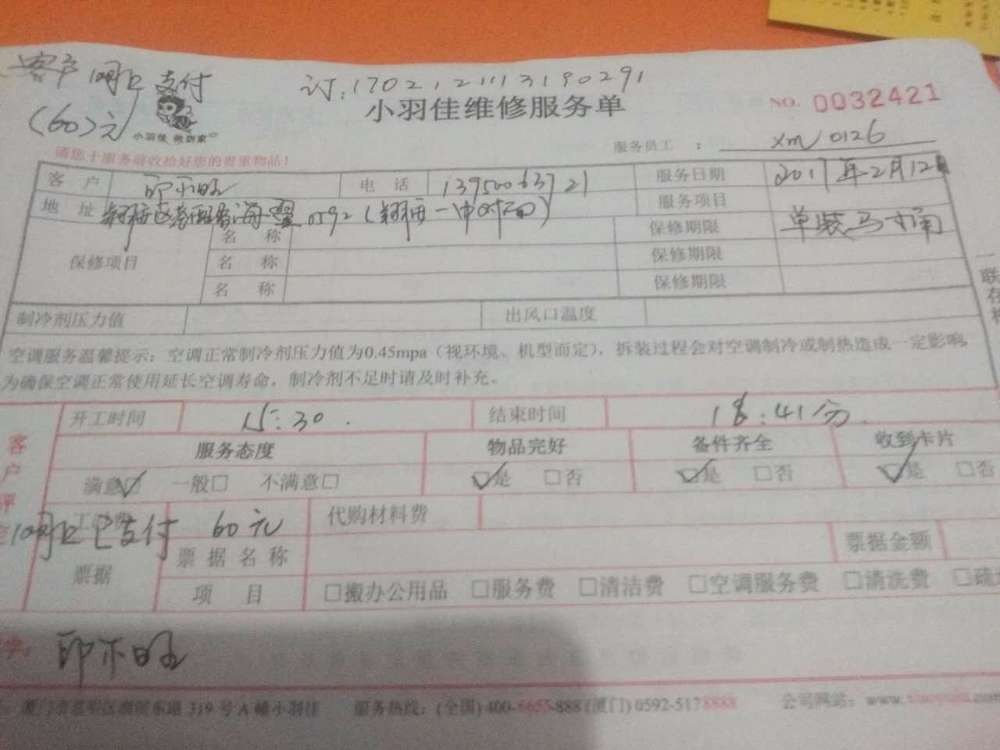 客户 支付
订:1702121113190291
(60)元
小羽佳维修服务单
NO. 0032421
小羽佳 找到家
服务员工 : xm 0126
请您于服务前收拾好您的贵重物品!
客 户 电 话 13950063721 服务日期 2017年2月12日
地 址 0592 (翔安一中对面) 服务项目
保修项目 名 称 保修期限 单装马桶
名 称 保修期限
名 称 保修期限
一联存根
制冷剂压力值 出风口温度
空调服务温馨提示:空调正常制冷剂压力值为0.45mpa(视环境、机型而定),拆装过程会对空调制冷或制热造成一定影响,
为确保空调正常使用延长空调寿命,制冷剂不足时请及时补充。
客户评
开工时间 15:30. 结束时间 18:41分
服务态度 物品完好 备件齐全 收到卡片
满意☑ 一般□ 不满意□ ☑是 □否 ☑是 □否 ☑是 □否
已支付 60元 代购材料费
票据 票据名称 票据金额
项 目 □搬办公用品 □服务费 □清洁费 □空调服务费 □清洗费 □疏
319号A幢小羽佳 服务热线:(全国)400-6655-888(厦门)0592-5178888 公司网站:www.xiaoyujia